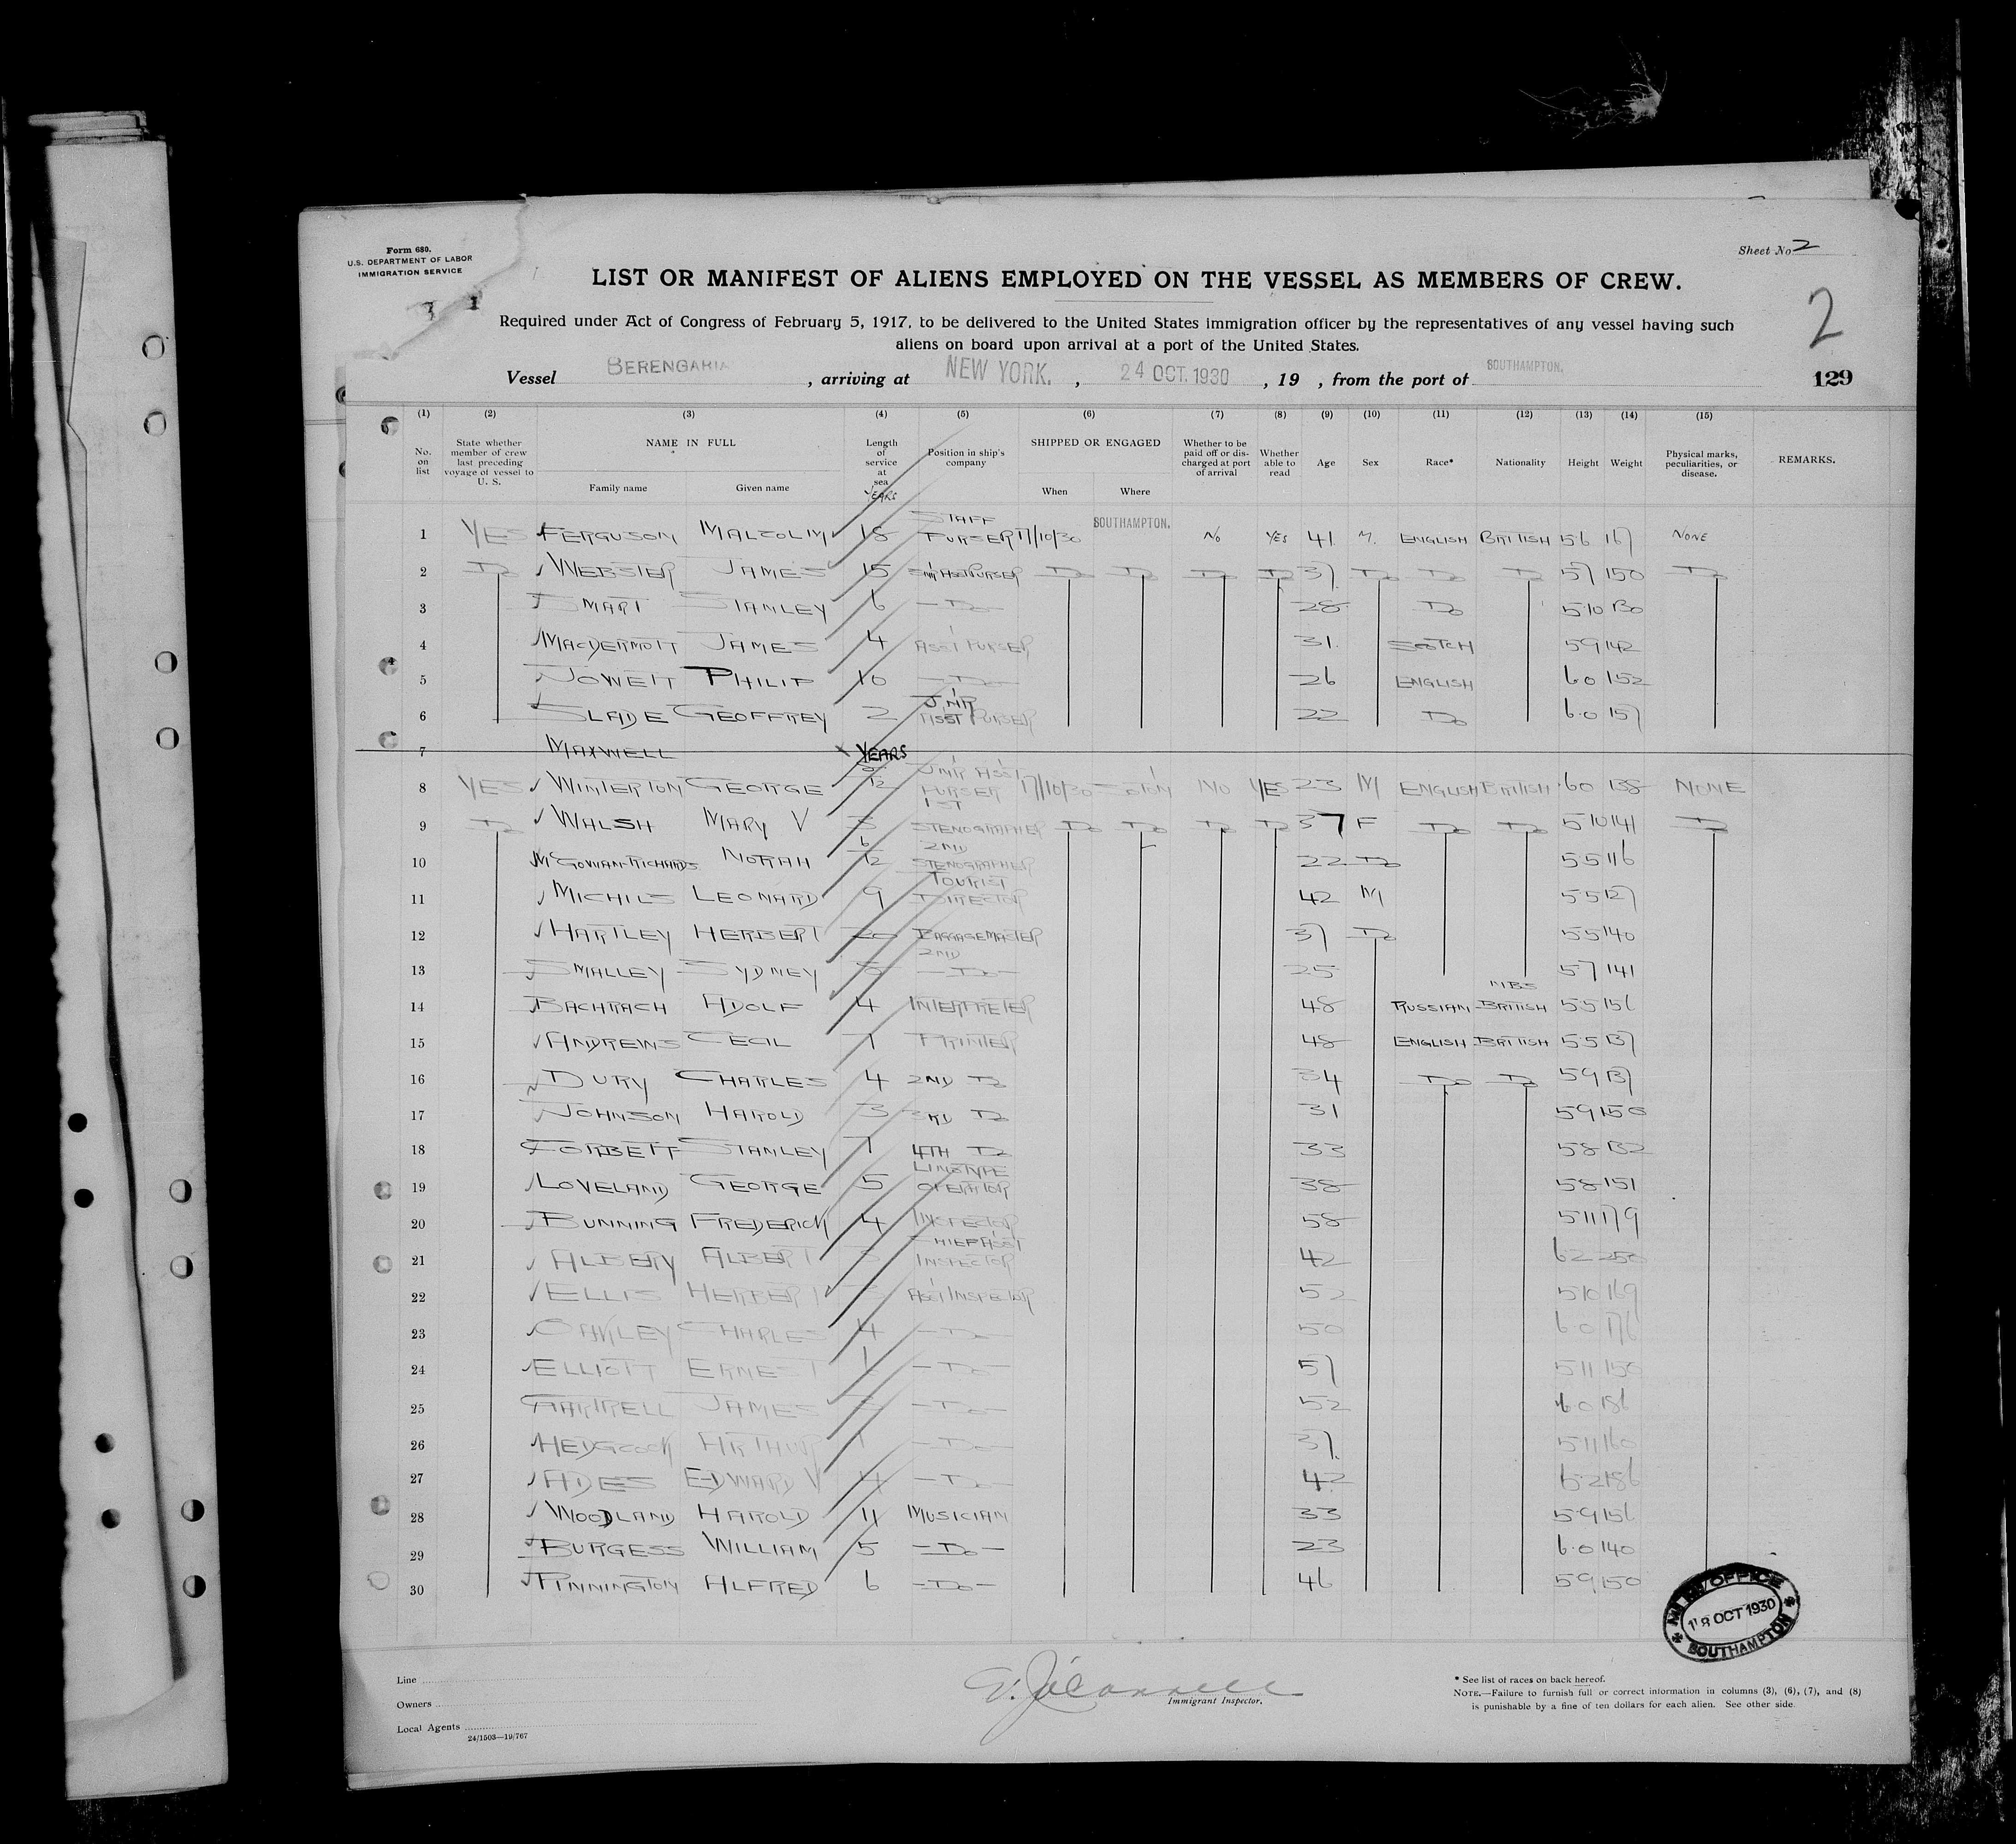 Form 680.
U.S. DEPARTMENT OF LABOR
IMMIGRATION SERVICE
Sheet No 2
LIST OR MANIFEST OF ALIENS EMPLOYED ON THE VESSEL AS MEMBERS OF CREW.
2
Required under Act of Congress of February 5, 1917, to be delivered to the United States immigration officer by the representatives of any vessel having such
aliens on board upon arrival at a port of the United States.
Vessel BERENGARIA, arriving at NEW YORK., 24 OCT. 1930, 19 , from the port of SOUTHAMPTON. 129
(1) (2) (3) (4) (5) (6) (7) (8) (9) (10) (11) (12) (13) (14) (15)
No. on list State whether member of crew last preceding voyage of vessel to U. S. NAME IN FULL Family name Given name Length of service at sea YEARS Position in ship's company SHIPPED OR ENGAGED When Where Whether to be paid off or discharged at port of arrival Whether able to read Age Sex Race* Nationality Height Weight Physical marks, peculiarities, or disease. REMARKS.
1 YES FERGUSON MALCOLM 18 STAFF PURSER 17/10/30 SOUTHAMPTON. NO YES 41 M. ENGLISH BRITISH 56 167 NONE
2 Do WEBSTER JAMES 15 SNR ASST PURSER Do Do Do Do 37 Do Do Do 57 150 Do
3 SMART STANLEY 6 -Do- 28 Do 5.10 130
4 MACDERMOTT JAMES 4 ASST PURSER 31 SCOTCH 59 142
5 JOWETT PHILIP 10 -Do- 26 ENGLISH 60 152
6 SLADE GEOFFREY 2 JNR ASST PURSER 22 Do 6.0 157
7 MAXWELL YEARS
8 YES WINTERTON GEORGE /12 JNR ASST PURSER 17/10/30 SOTON NO YES 23 M ENGLISH BRITISH 60 138 NONE
9 Do WALSH MARY V 3 1ST STENOGRAPHER Do Do Do Do 37 F Do Do 510 141 Do
10 McGOWAN-RICHARDS NORAH 6/12 2ND STENOGRAPHER 22 Do 55 116
11 MICHILS LEONARD 9 TOURIST DIRECTOR 42 M 55 127
12 HARTLEY HERBERT 20 BAGGAGEMASTER 37 Do 55 140
13 SMALLEY SYDNEY 5 2ND -Do- 25 57 141
14 BACHRACH ADOLF 4 INTERPRETER 48 RUSSIAN BRITISH 55 156
15 ANDREWS CECIL 1 PRINTER 48 ENGLISH BRITISH 55 137
16 DURY CHARLES 4 2ND Do 34 Do Do 59 137
17 JOHNSON HAROLD 3 3RD Do 31 59 150
18 CORBETT STANLEY 1 4TH Do 33 58 132
19 LOVELAND GEORGE 5 LINOTYPE OPERATOR 38 58 151
20 BUNNING FREDERICK 4 INSPECTOR 58 511 179
21 ALBERY ALBERT CHIEF ASST INSPECTOR 42 62 250
22 ELLIS HERBERT ASST INSPECTOR 52 510 169
23 OAKLEY CHARLES 4 -Do- 50 60 176
24 ELLIOTT ERNEST 1 -Do- 57 511 150
25 GARTRELL JAMES -Do- 52 6.0 186
26 HEDGCOCK ARTHUR 1 -Do- 37 511 160
27 ADES EDWARD V 4 -Do- 42 6.2 186
28 WOODLAND HAROLD 11 MUSICIAN 33 59 156
29 BURGESS WILLIAM 5 -Do- 23 6.0 140
30 PINNINGTON ALFRED 6 -Do- 46 59 150
OFFICE
18 OCT 1930
SOUTHAMPTON
Line
Owners
Local Agents
24/1503—19/767
Immigrant Inspector.
* See list of races on back hereof.
NOTE.—Failure to furnish full or correct information in columns (3), (6), (7), and (8)
is punishable by a fine of ten dollars for each alien. See other side.